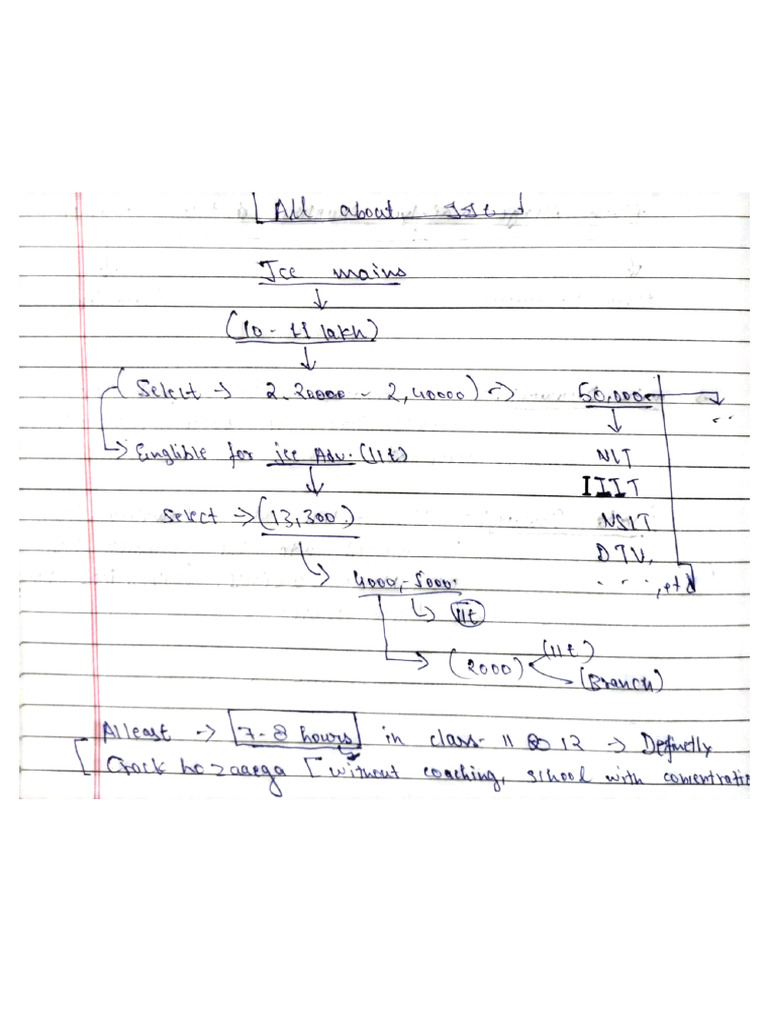 [All about JEE]
Jee mains
↓
(10 - 11 lakh)
↓
(Select → 2.20000 - 2,40000) → 50,000
↓
→ Einglible for jee Adv. (IIt) NIT
↓ IIIT
select → (13,300.) NSIT
DTU,
→ 4000,-5000. ....., etc
→ IIt
→ (2000) (IIt)
(Branch)
Alleast → 7-8 hours in class- 11 12 → Definetly
Crack ho zaaega [without coaching, school with